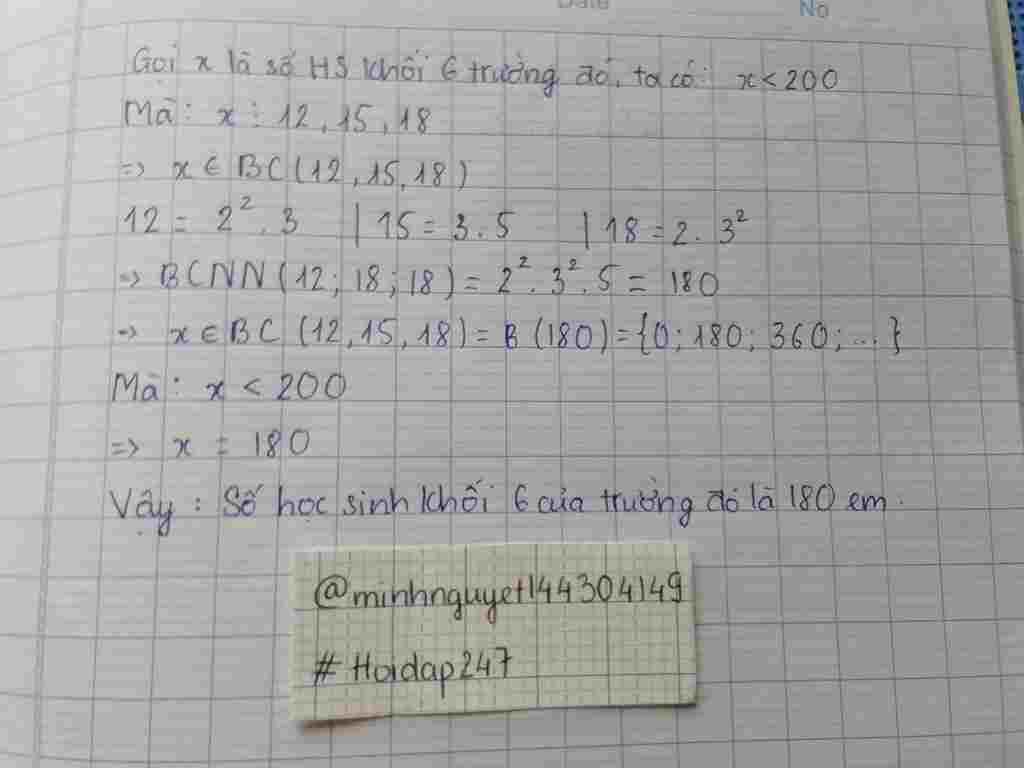 Date No
Gọi x là số HS khối 6 trường đó, ta có: x < 200
Mà: x ⋮ 12, 15, 18
=> x ∈ BC (12, 15, 18)
12 = 2². 3 | 15 = 3. 5 | 18 = 2. 3²
=> BCNN (12; 18; 18) = 2². 3². 5 = 180
=> x ∈ BC (12, 15, 18) = B (180) = {0; 180; 360; ...}
Mà: x < 200
=> x = 180
Vậy: Số học sinh khối 6 của trường đó là 180 em.
@minhnguyet144304149
# Hoidap247